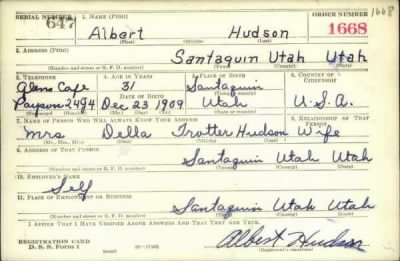 SERIAL NUMBER 1. NAME (Print) ORDER NUMBER 1668
647 Albert Hudson 1668
2. ADDRESS (Print)
Santaquin Utah Utah
(Number and street or R. F. D. number) (Town) (County) (State)
3. TELEPHONE 4. AGE IN YEARS 5. PLACE OF BIRTH 6. COUNTRY OF CITIZENSHIP
Glens Cafe 31 Santaquin
DATE OF BIRTH
Payson 2494 Dec 23 1909 Utah U.S.A.
7. NAME OF PERSON WHO WILL ALWAYS KNOW YOUR ADDRESS 8. RELATIONSHIP OF THAT PERSON
Mrs Della Trotter Hudson Wife
(Mr., Mrs., Miss) (First) (Middle) (Last)
9. ADDRESS OF THAT PERSON
Santaquin Utah Utah
(Number and street or R. F. D. number) (Town) (County) (State)
10. EMPLOYER'S NAME
Self
11. PLACE OF EMPLOYMENT OR BUSINESS
Santaquin Utah Utah
(Number and street or R. F. D. number) (Town) (County) (State)
I AFFIRM THAT I HAVE VERIFIED ABOVE ANSWERS AND THAT THEY ARE TRUE.
REGISTRATION CARD
D. S. S. FORM 1 Albert Hudson
(Registrant's signature)